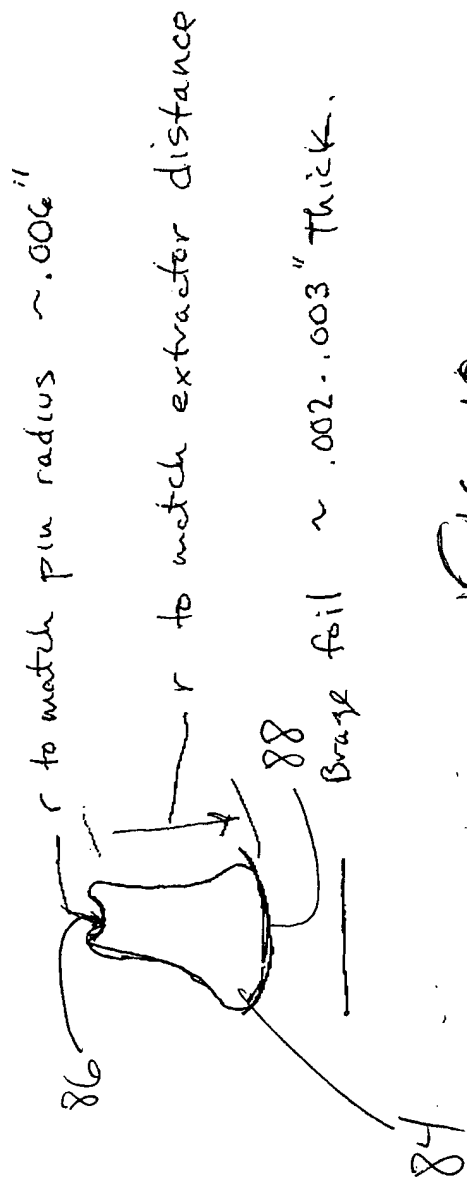 r to match pin radius ~.006"
86
r to match extractor distance
88
Braze foil ~ .002-.003" thick.
84